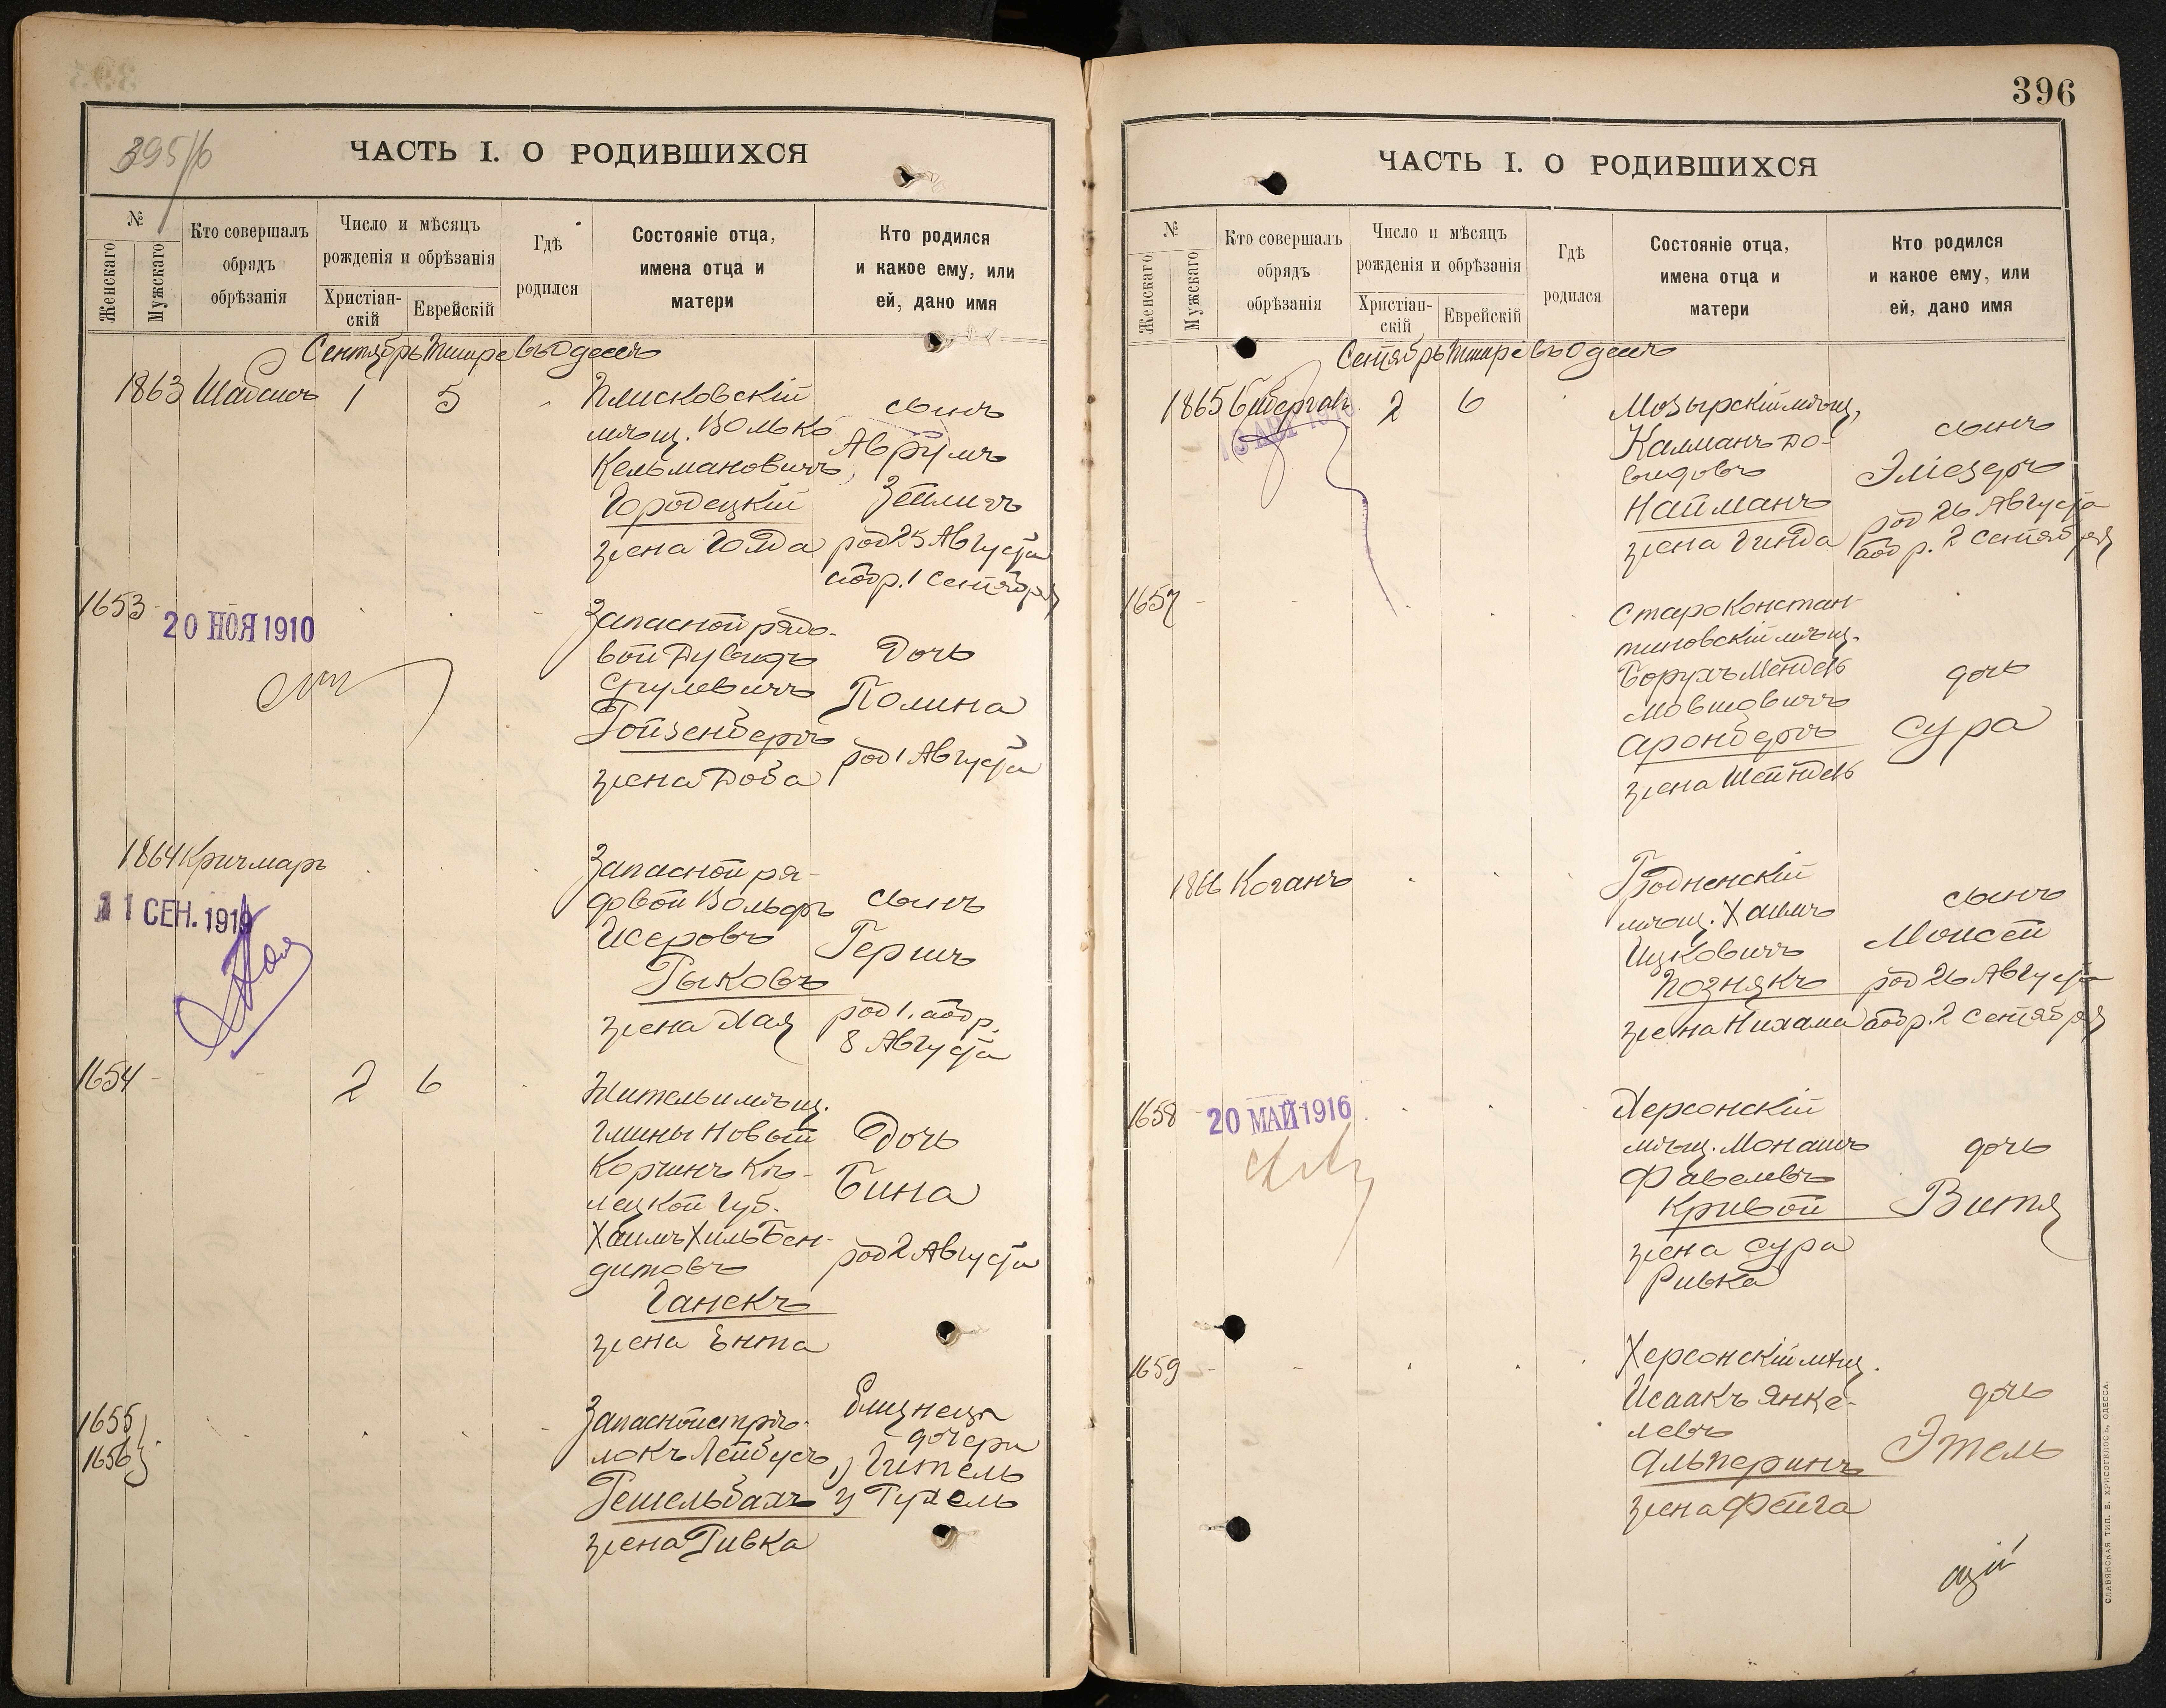 395/б
ЧАСТЬ I. О РОДИВШИХСЯ
№
Женскаго
Мужскаго
Кто совершалъ
обрядъ
обрѣзанія
Число и мѣсяцъ
рожденія и обрѣзанія
Христіан-
скій
Еврейскій
Гдѣ
родился
Состояніе отца,
имена отца и
матери
Кто родился
и какое ему, или
ей, дано имя
Сентябрь Тишре въ Одессѣ
1863 Шайсисъ 1 5
Плисковскій
мѣщ. Волько
Кельмановичъ
Городецкій
жена Голда
сынъ
Аврумъ
Зейлигъ
род 25 Августа
обр. 1 Сентября
1653
20 НОЯ 1910
Запасной рядо-
вой Дувидъ
Срулевичъ
Ройзенбергъ
жена Доба
Дочь
Полина
род 1 Августа
1864 Кричмаръ
11 СЕН. 1919
Запасной ря-
довой Вольфъ
Исеровъ
Рыковъ
жена Хая
сынъ
Гершъ
род 1, обр.
8 Августа
1654 2 6
Житель и мѣщ.
гмины Новый
Корчинъ Кѣ-
лецкой Губ.
Хаимъ Хиль Бен-
дитовъ
Ганекъ
жена Ента
Дочь
Бина
род 2 Августа
1655
1656
Запасной стрѣ-
локъ Лейбусь
Гешельбахъ
жена Ривка
Близнецы
дочери
1) Гитель
2) Рухель
396
ЧАСТЬ I. О РОДИВШИХСЯ
№
Женскаго
Мужскаго
Кто совершалъ
обрядъ
обрѣзанія
Число и мѣсяцъ
рожденія и обрѣзанія
Христіан-
скій
Еврейскій
Гдѣ
родился
Состояніе отца,
имена отца и
матери
Кто родился
и какое ему, или
ей, дано имя
Сентябрь Тишре въ Одессѣ
1865 2 6
Мозырскій мѣщ,
Калманъ До-
видовъ
Найманъ
жена Гинда
сынъ
Эліезеръ
род 26 Августа
обр. 2 Сентября
1657
Староконстан-
тиновскій мѣщ.
Борухъ Мендель
Мовшовичъ
Аронбергъ
жена Шейндель
дочь
Сура
1866 Коганъ
Гродненскій
мѣщ. Хаимъ
Ицковичъ
Познякъ
жена Нихама
сынъ
Моисей
род 26 Августа
обр. 2 Сентября
1658
20 МАЙ 1916
Херсонскій
мѣщ. Монашъ
Файвелевъ
Кривой
жена Сура
Ривка
дочь
Витя
1659
Херсонскій мѣщ.
Исаакъ Янке-
левъ
Альперинъ
жена Фейга
дочь
Этель
СЛАВЯНСКАЯ ТИП. Е. ХРИСОГЕЛОСЪ, ОДЕССА.